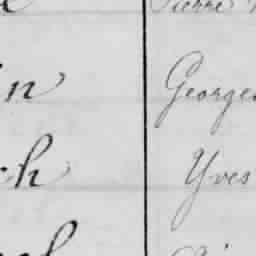 Pierre
in Georges
ch Yves